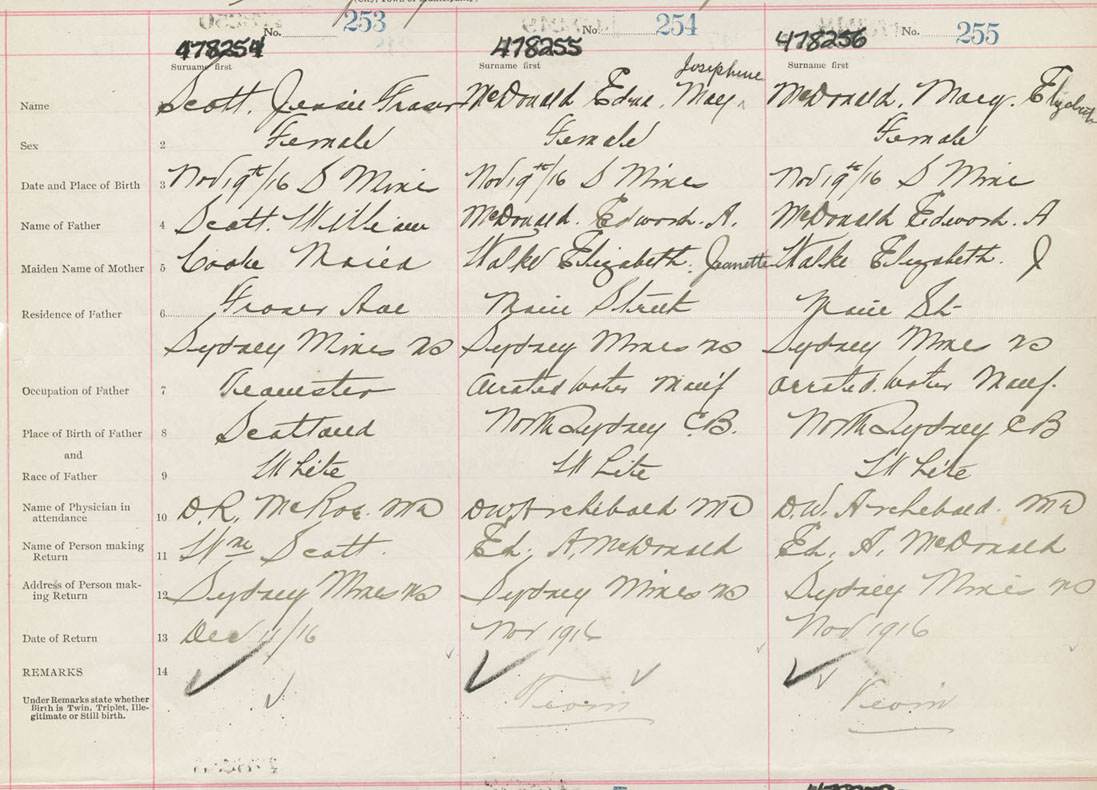 No. 253 No. 254 No. 255
478254 478255 478256
Surname first Surname first Surname first
Josephine
Name Scott, Jessie Fraser McDonald Edna, May McDonald, Mary, Elizabeth
Sex 2 Female Female Female
Date and Place of Birth 3 Nov 19th/16 S Mines Nov 19th/16 S Mines Nov 19th/16 S Mines
Name of Father 4 Scott, William McDonald, Edward. A. McDonald Edward. A
Maiden Name of Mother 5 Cooke Walke Elizabeth. Jeanette Walke Elizabeth. J
Residence of Father 6 Fraser Ave Main Street Main St
Sydney Mines NS Sydney Mines NS Sydney Mines NS
Occupation of Father 7 Teamster Aerated Water Manuf Aerated Water Manuf.
Place of Birth of Father 8 Scotland North Sydney C.B. North Sydney CB
and
Race of Father 9 White White White
Name of Physician in
attendance 10 D.R. McRae. MD DW Archibald MD D.W. Archibald. MD
Name of Person making
Return 11 Wm Scott. Ed. A. McDonald Ed. A. McDonald
Address of Person mak-
ing Return 12 Sydney Mines NS Sydney Mines NS Sydney Mines NS
Date of Return 13 Dec /16 Nov 1916 Nov 1916
REMARKS 14
Under Remarks state whether
Birth is Twin, Triplet, Ille-
gitimate or Still birth.
Twin Twin